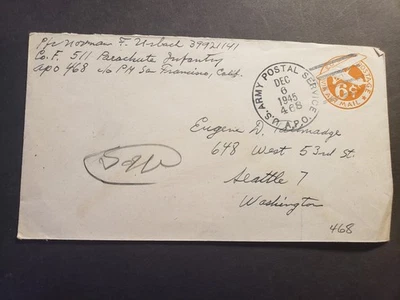 Pfc Norman F. Urbach 39921141
Co. F. 511 Parachute Infantry
APO 468 c/o PM San Francisco, Calif.
U.S. ARMY POSTAL SERVICE
DEC
6
1945
468
A.P.O.
POSTAGE
6¢
AIR MAIL
Eugene D. Talmadge
648 West 53rd St.
Seattle 7
Washington
468